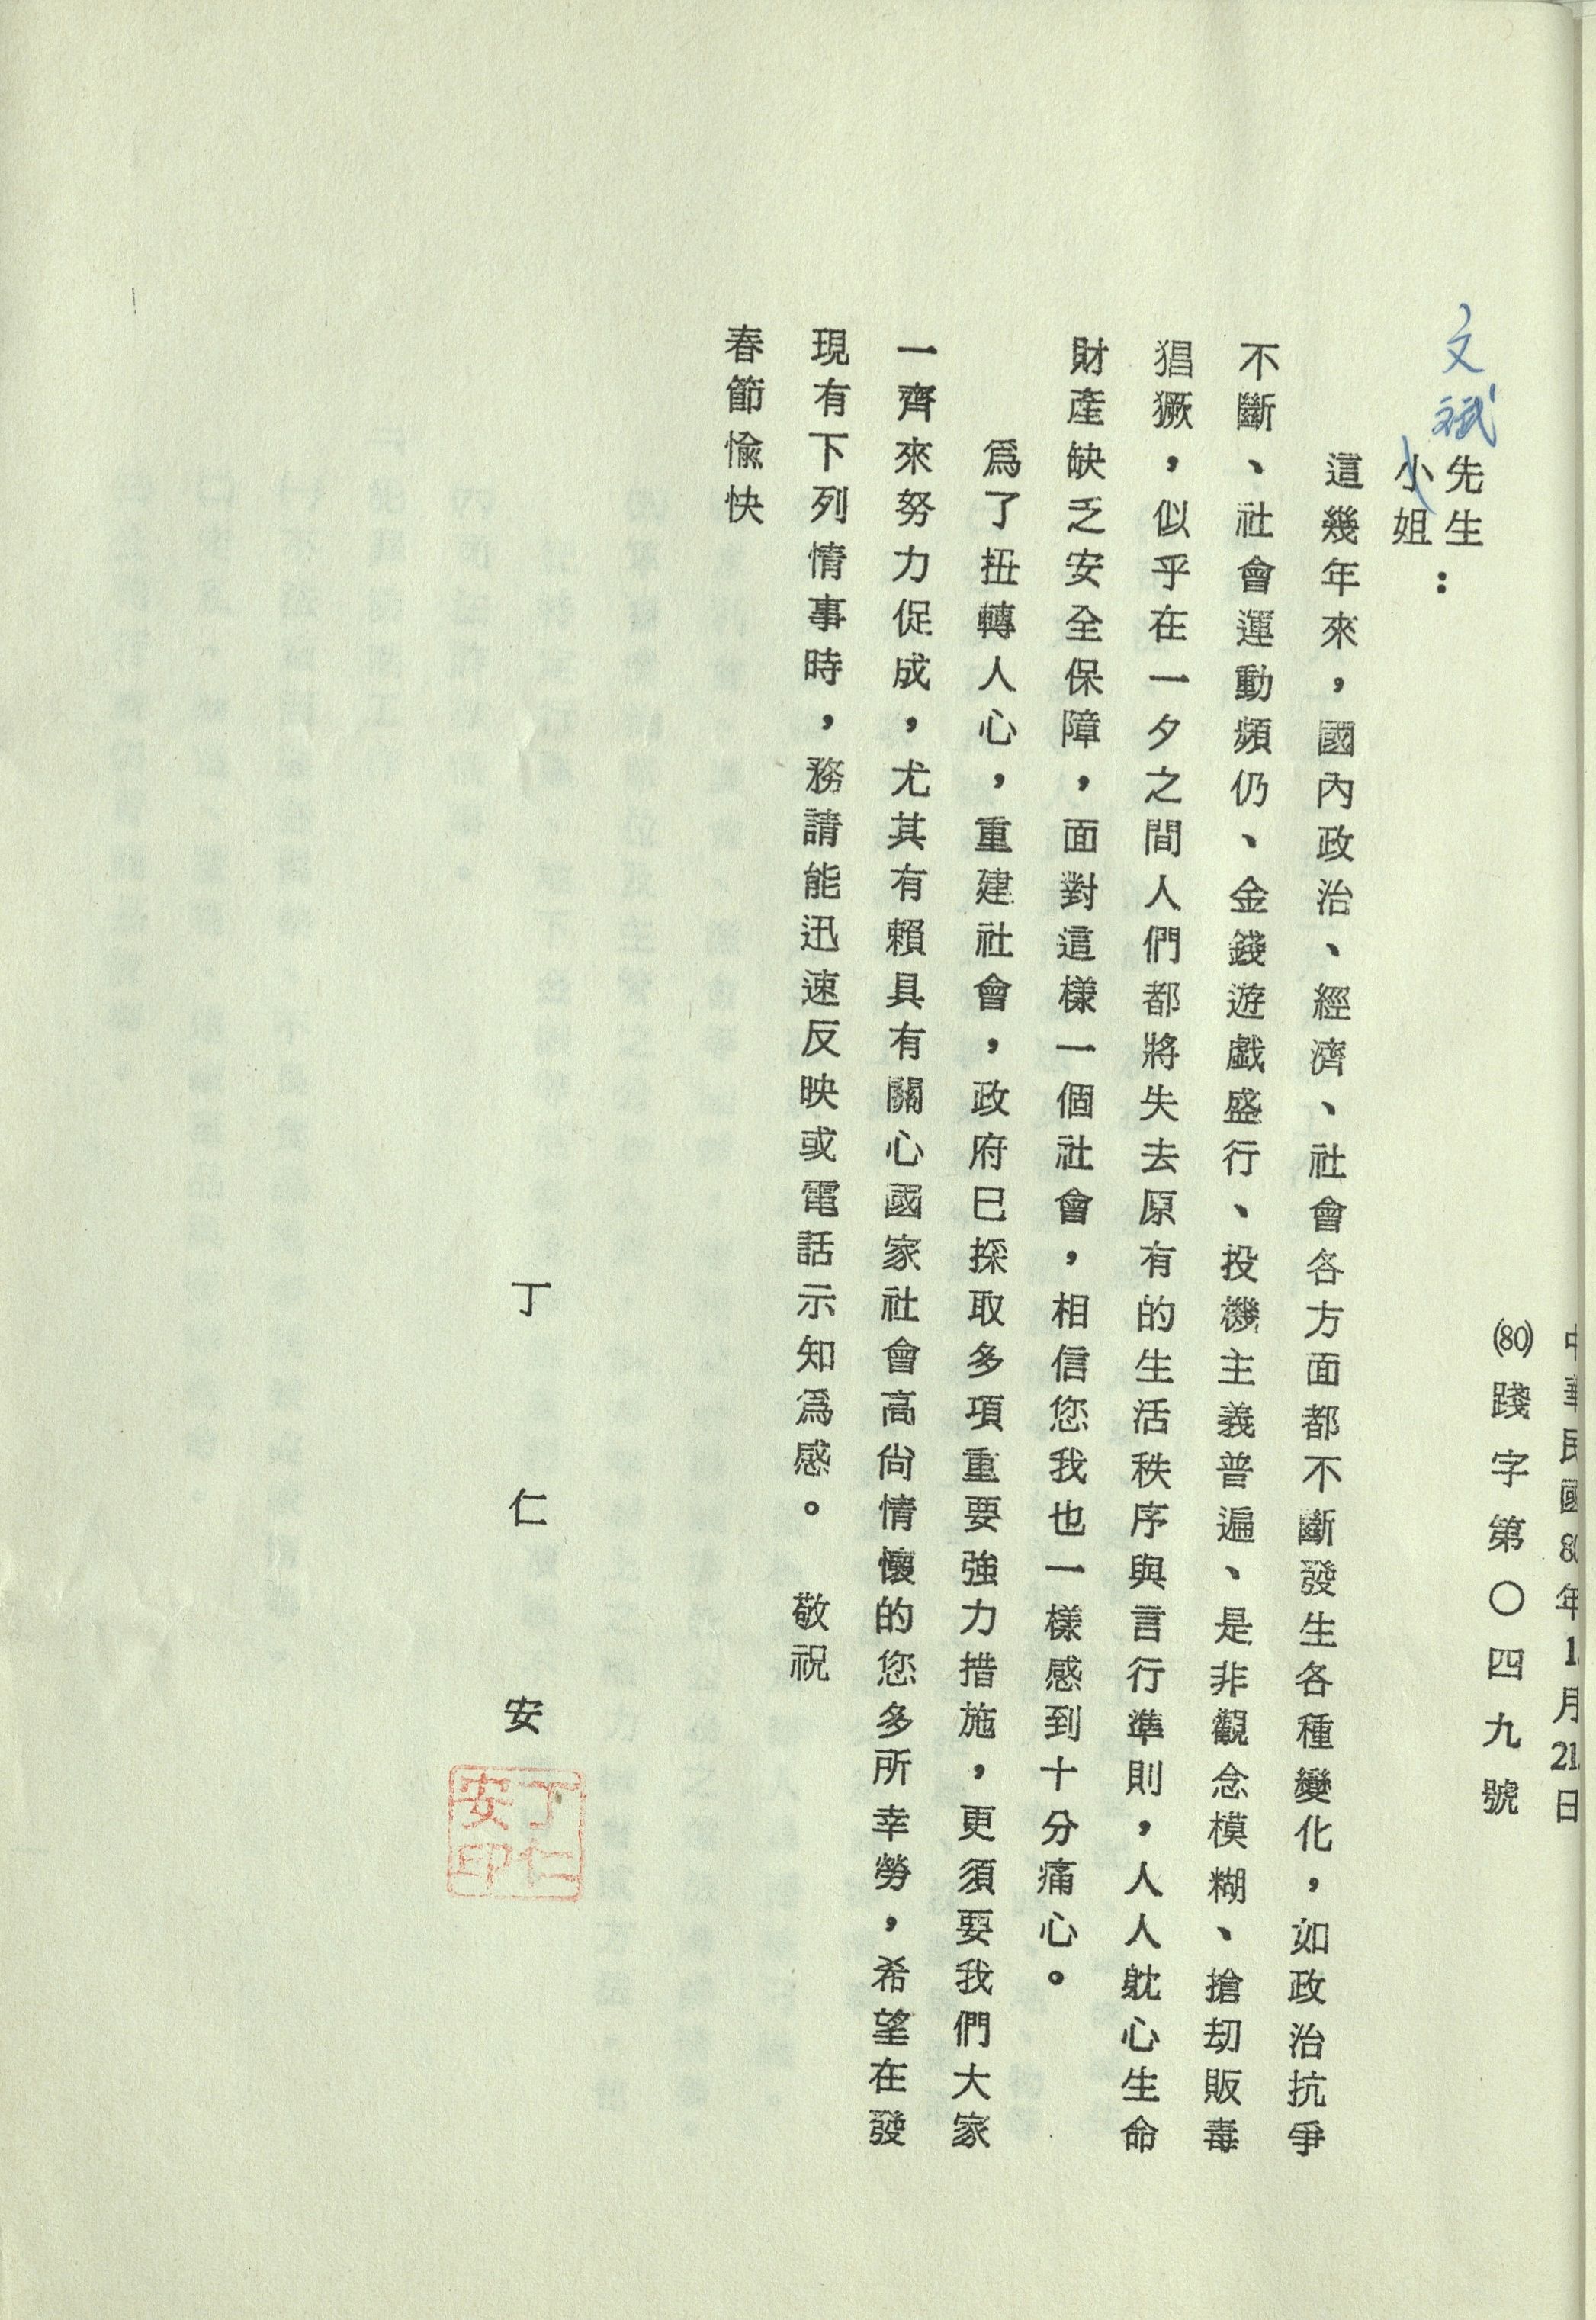 中華民國80年1月21日
(80)踐字第〇四九號
文斌先生
小姐：
這幾年來，國內政治、經濟、社會各方面都不斷發生各種變化，如政治抗爭
不斷、社會運動頻仍、金錢遊戲盛行、投機主義普遍、是非觀念模糊、搶刼販毒
猖獗，似乎在一夕之間人們都將失去原有的生活秩序與言行準則，人人躭心生命
財產缺乏安全保障，面對這樣一個社會，相信您我也一樣感到十分痛心。
爲了扭轉人心，重建社會，政府已採取多項重要強力措施，更須要我們大家
一齊來努力促成，尤其有賴具有關心國家社會高尙情懷的您多所幸勞，希望在發
現有下列情事時，務請能迅速反映或電話示知爲感。　敬祝
春節愉快
丁仁安
丁仁安印